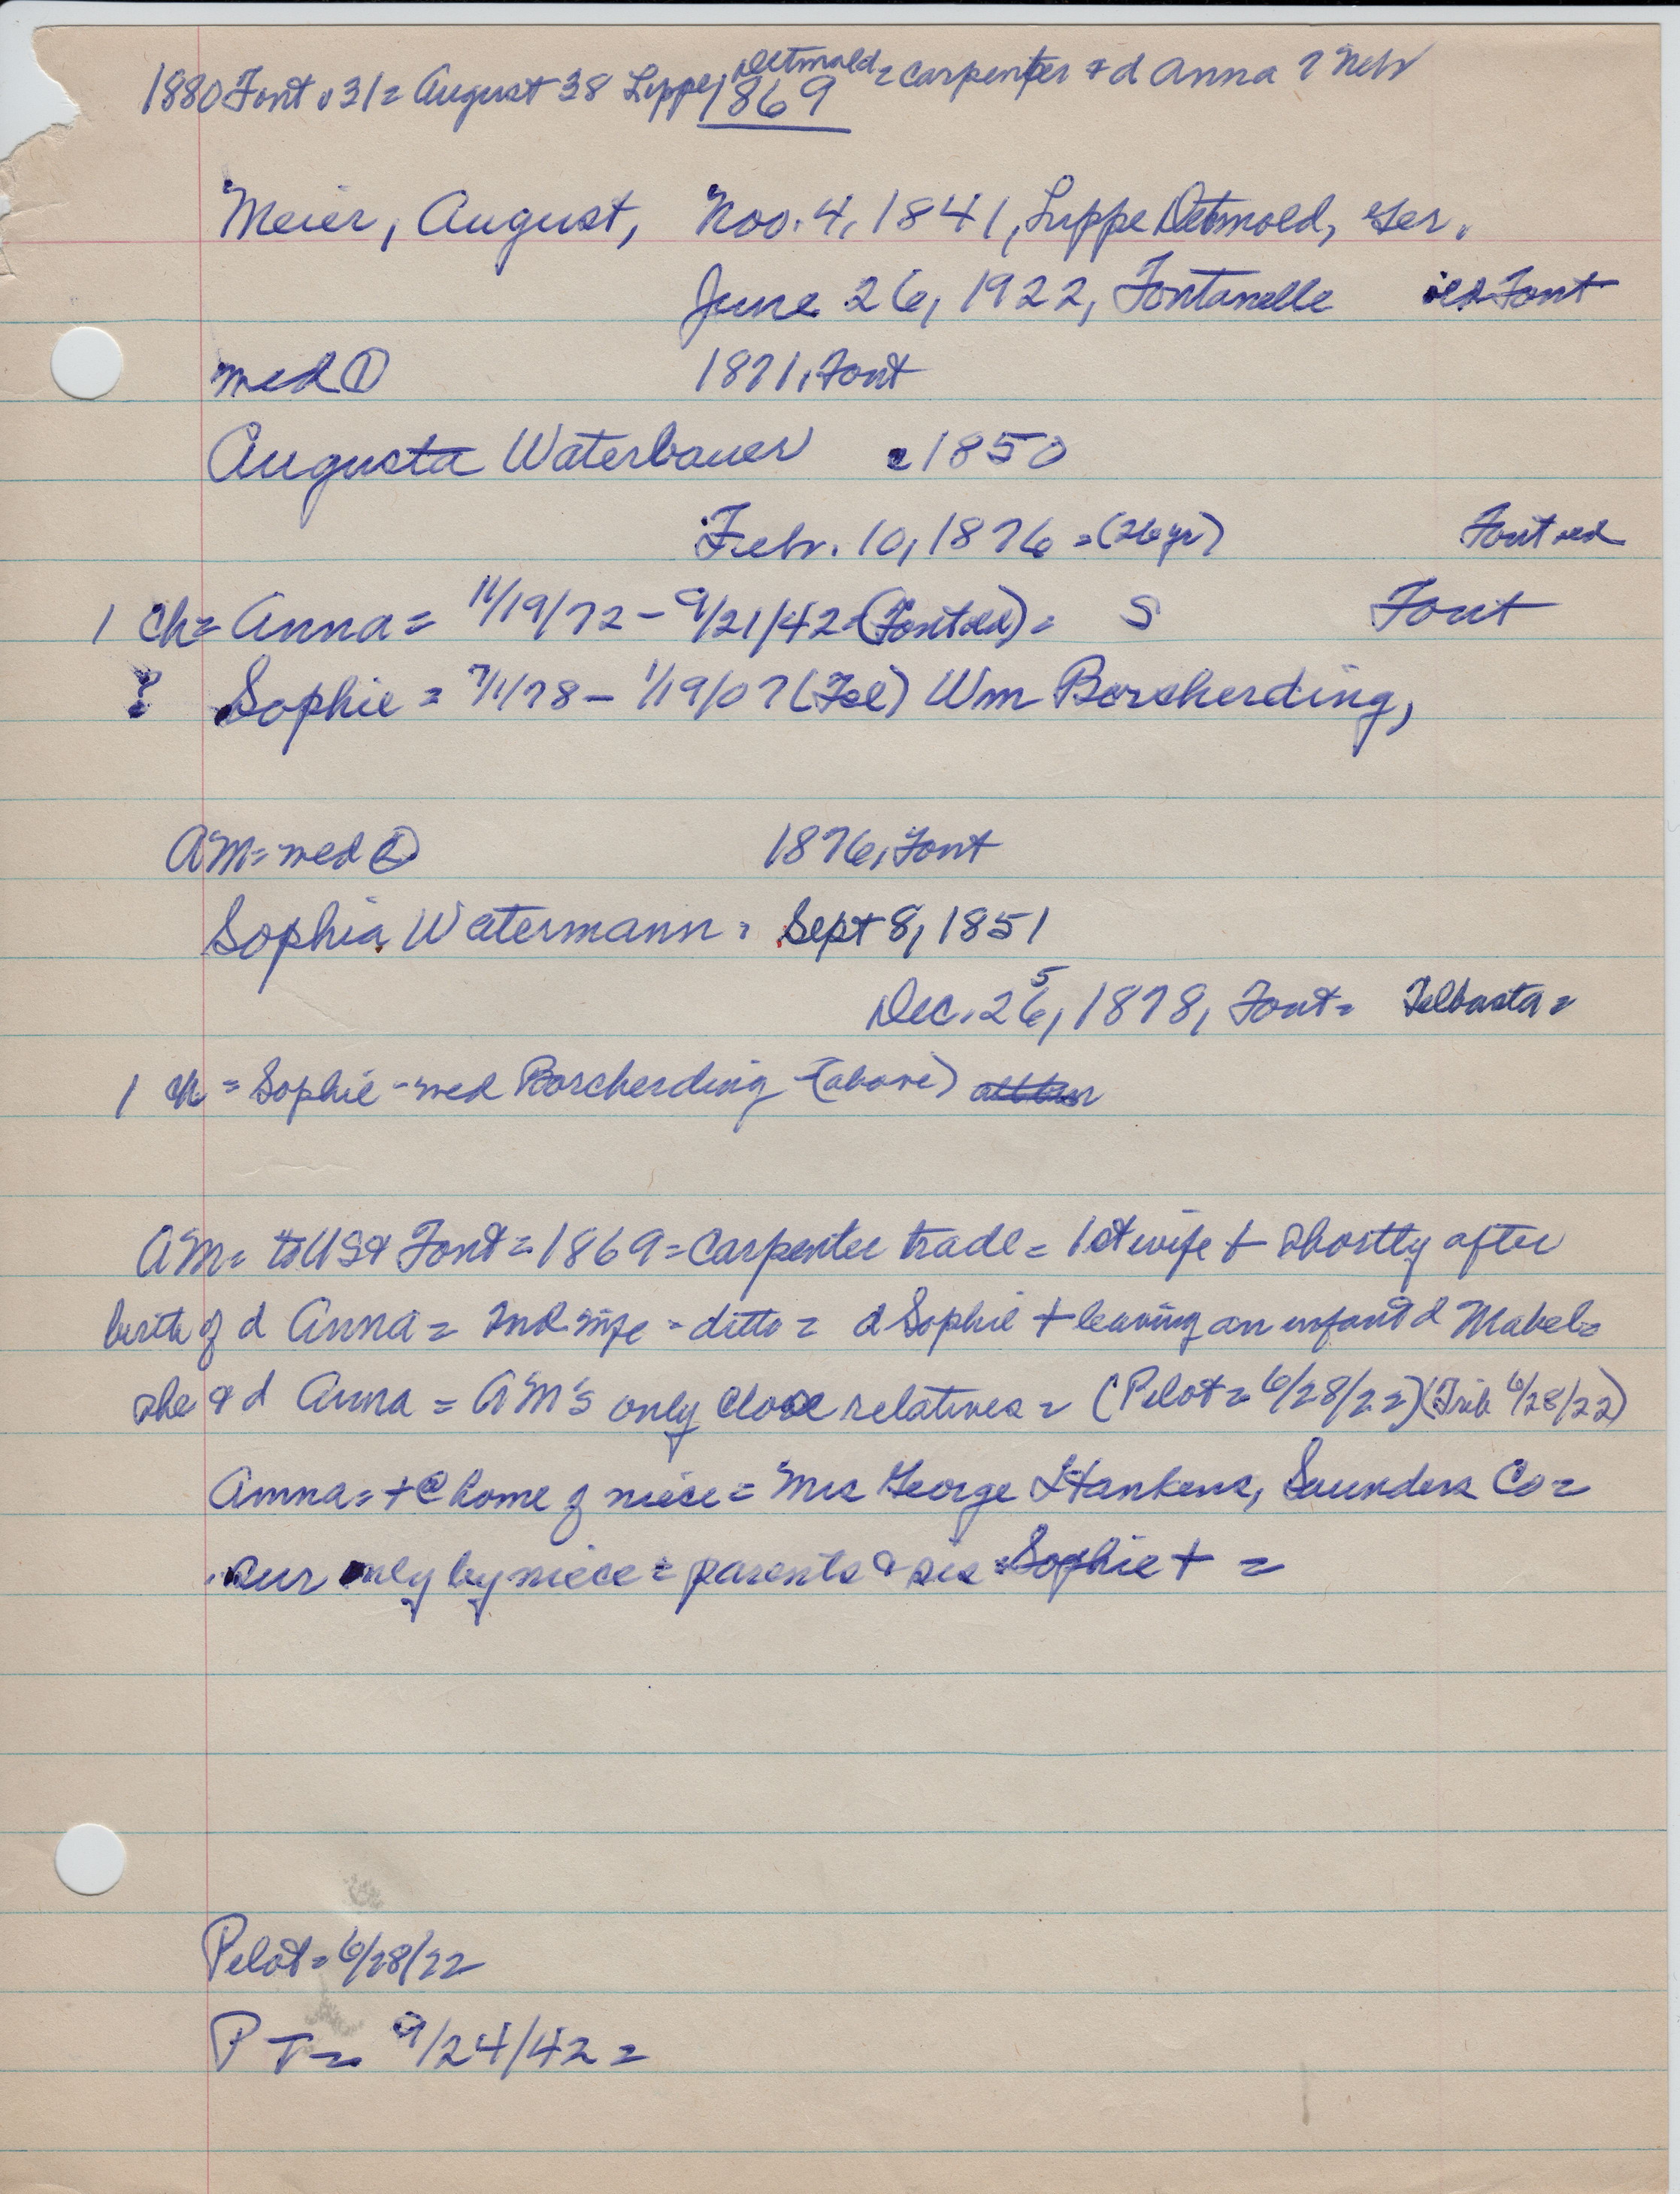 1880 Font #31 = August 38 Lippe Detmold = carpenter & d Anna 7 Neb
1869
Meier, August, Nov. 4, 1841, Lippe Detmold, Ger.
June 26, 1922, Fontanelle Font
med ① 1871, Font
Augusta Waterbauer c1850
Feb. 10, 1876 = (26 yr) Font
1 ch = Anna = 11/19/72 - 9/21/42 = = S Font
? Sophie = 7/1/78 - 1/19/07 (Tel) Wm Borcherding,
AM = med ② 1876, Font
Sophia Watermann = Sept 8, 1851
Dec. 26, 1878, Font = Telbasta =
5
1 ch = Sophie - med Borcherding - (above)
AM = to US & Font = 1869 = carpenter trade = 1st wife + shortly after
birth of d Anna = 2nd wife - ditto = d Sophie + leaving an infant d Mabel =
she & d Anna = AM's only close relatives = (Pilot = 6/28/22) (Trib 6/28/22)
Anna = + @ home of niece = Mrs George Hankens, Saunders Co =
sur only by niece = parents & sis Sophie + =
Pilot = 6/28/22
PT = 9/24/42 =